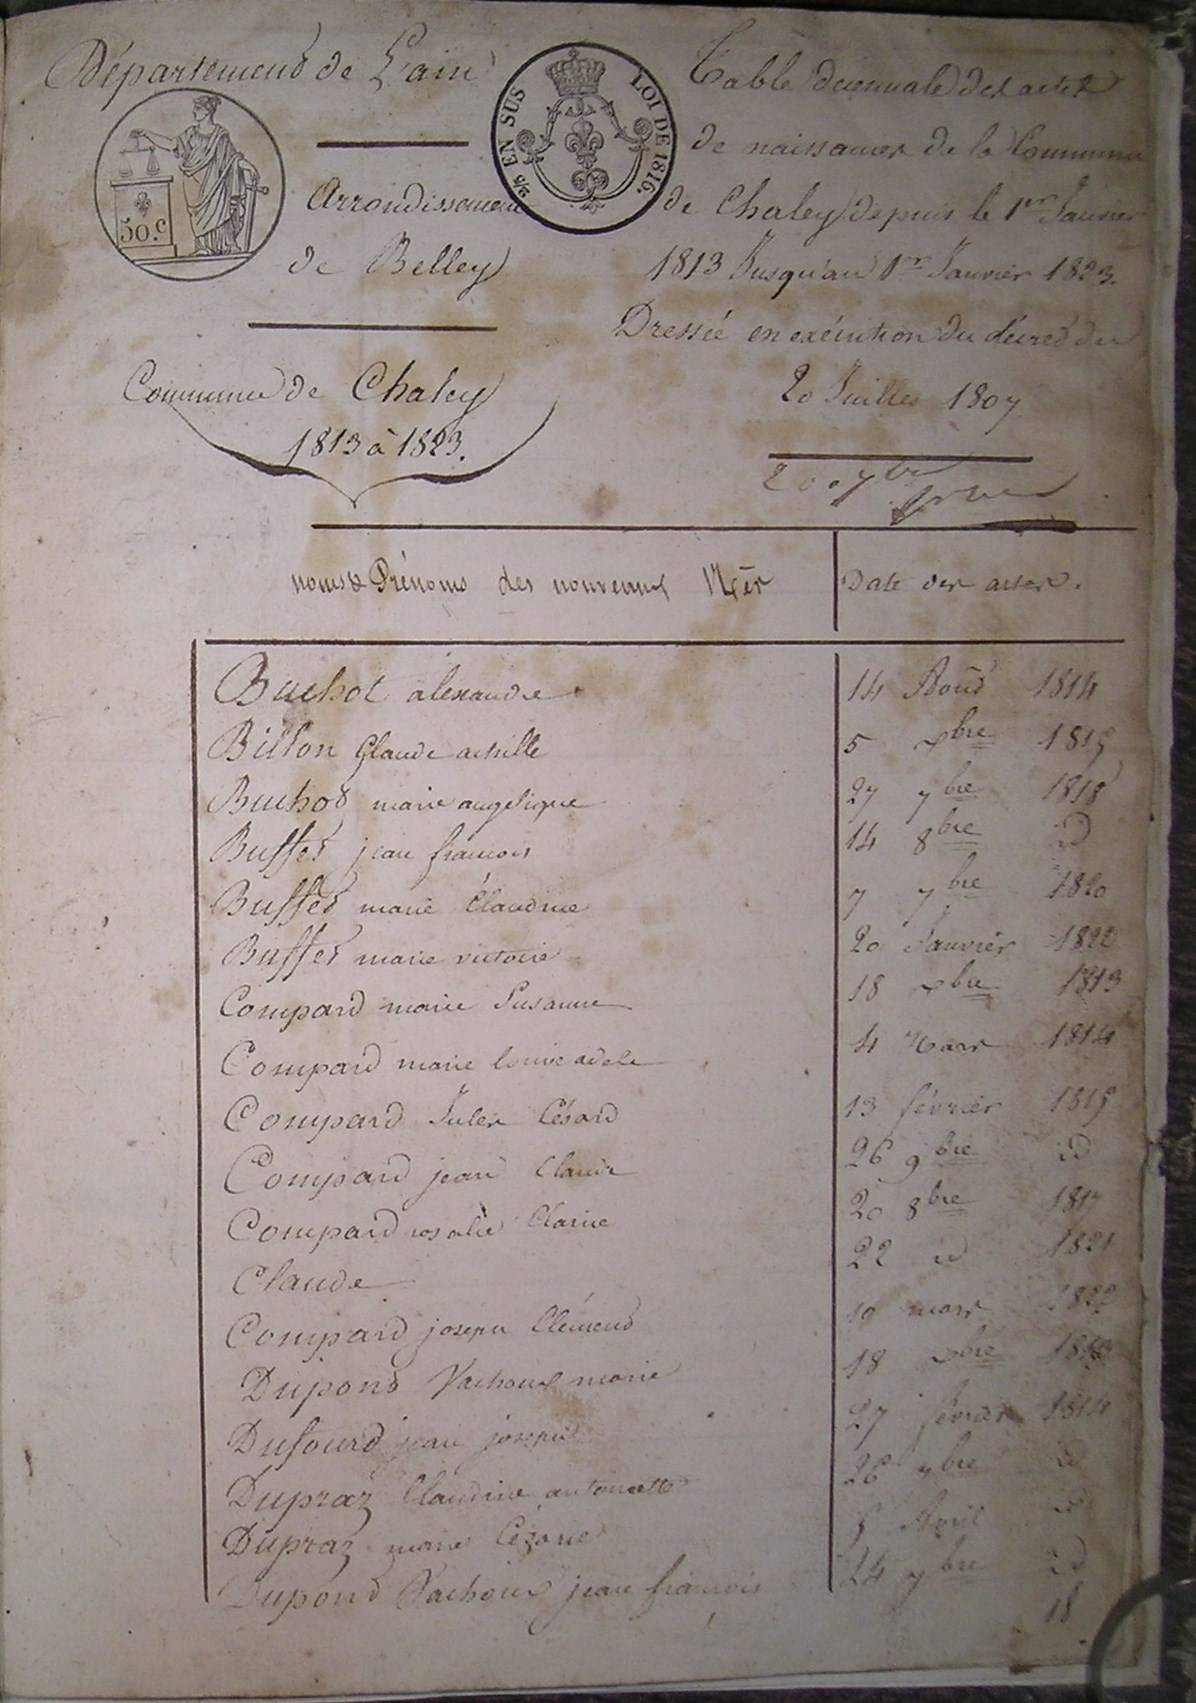 Département de L'ain
2/5 EN SUS
LOI DE 1816.
50.c
Arrondissement
de Belley
Commune de Chaley
1813 à 1823.
Table decennale des actes
de naissances de la Commune
de Chaley depuis le 1er Janvier
1813 Jusqu'au 1er Janvier 1823.
Dressée en exécution du décret du
20 Juillet 1807
noms & Prénoms des nouveaux Nés
Date des actes.
Buchot alexandre 14 Aout 1814
Billon Claude achille 5 xbre 1815
Buchot marie angelique 27 7bre 1818
Buffet jean francois 14 8bre id
Buffet marie Claudine 7 7bre 1820
Buffet marie victoire 20 Janvier 1822
Compard marie Susanne 18 xbre 1813
Compard marie louise adele 4 Mars 1814
Compard Jules Césard 13 février 1815
Compard jean Claude 26 9bre id
Compard rosalie Clarice 20 8bre
Claude 22 id 1821
Compard joseph Clément 19 mars 1822
Dupont Vachoux marie 18 xbre
Dufourd jean joseph 27 février 1814
Dupraz Claudine antoinette 26 7bre id
Dupraz marie Cézarie Avril id
Dupond Vachoux jean francois 24 7bre id
18